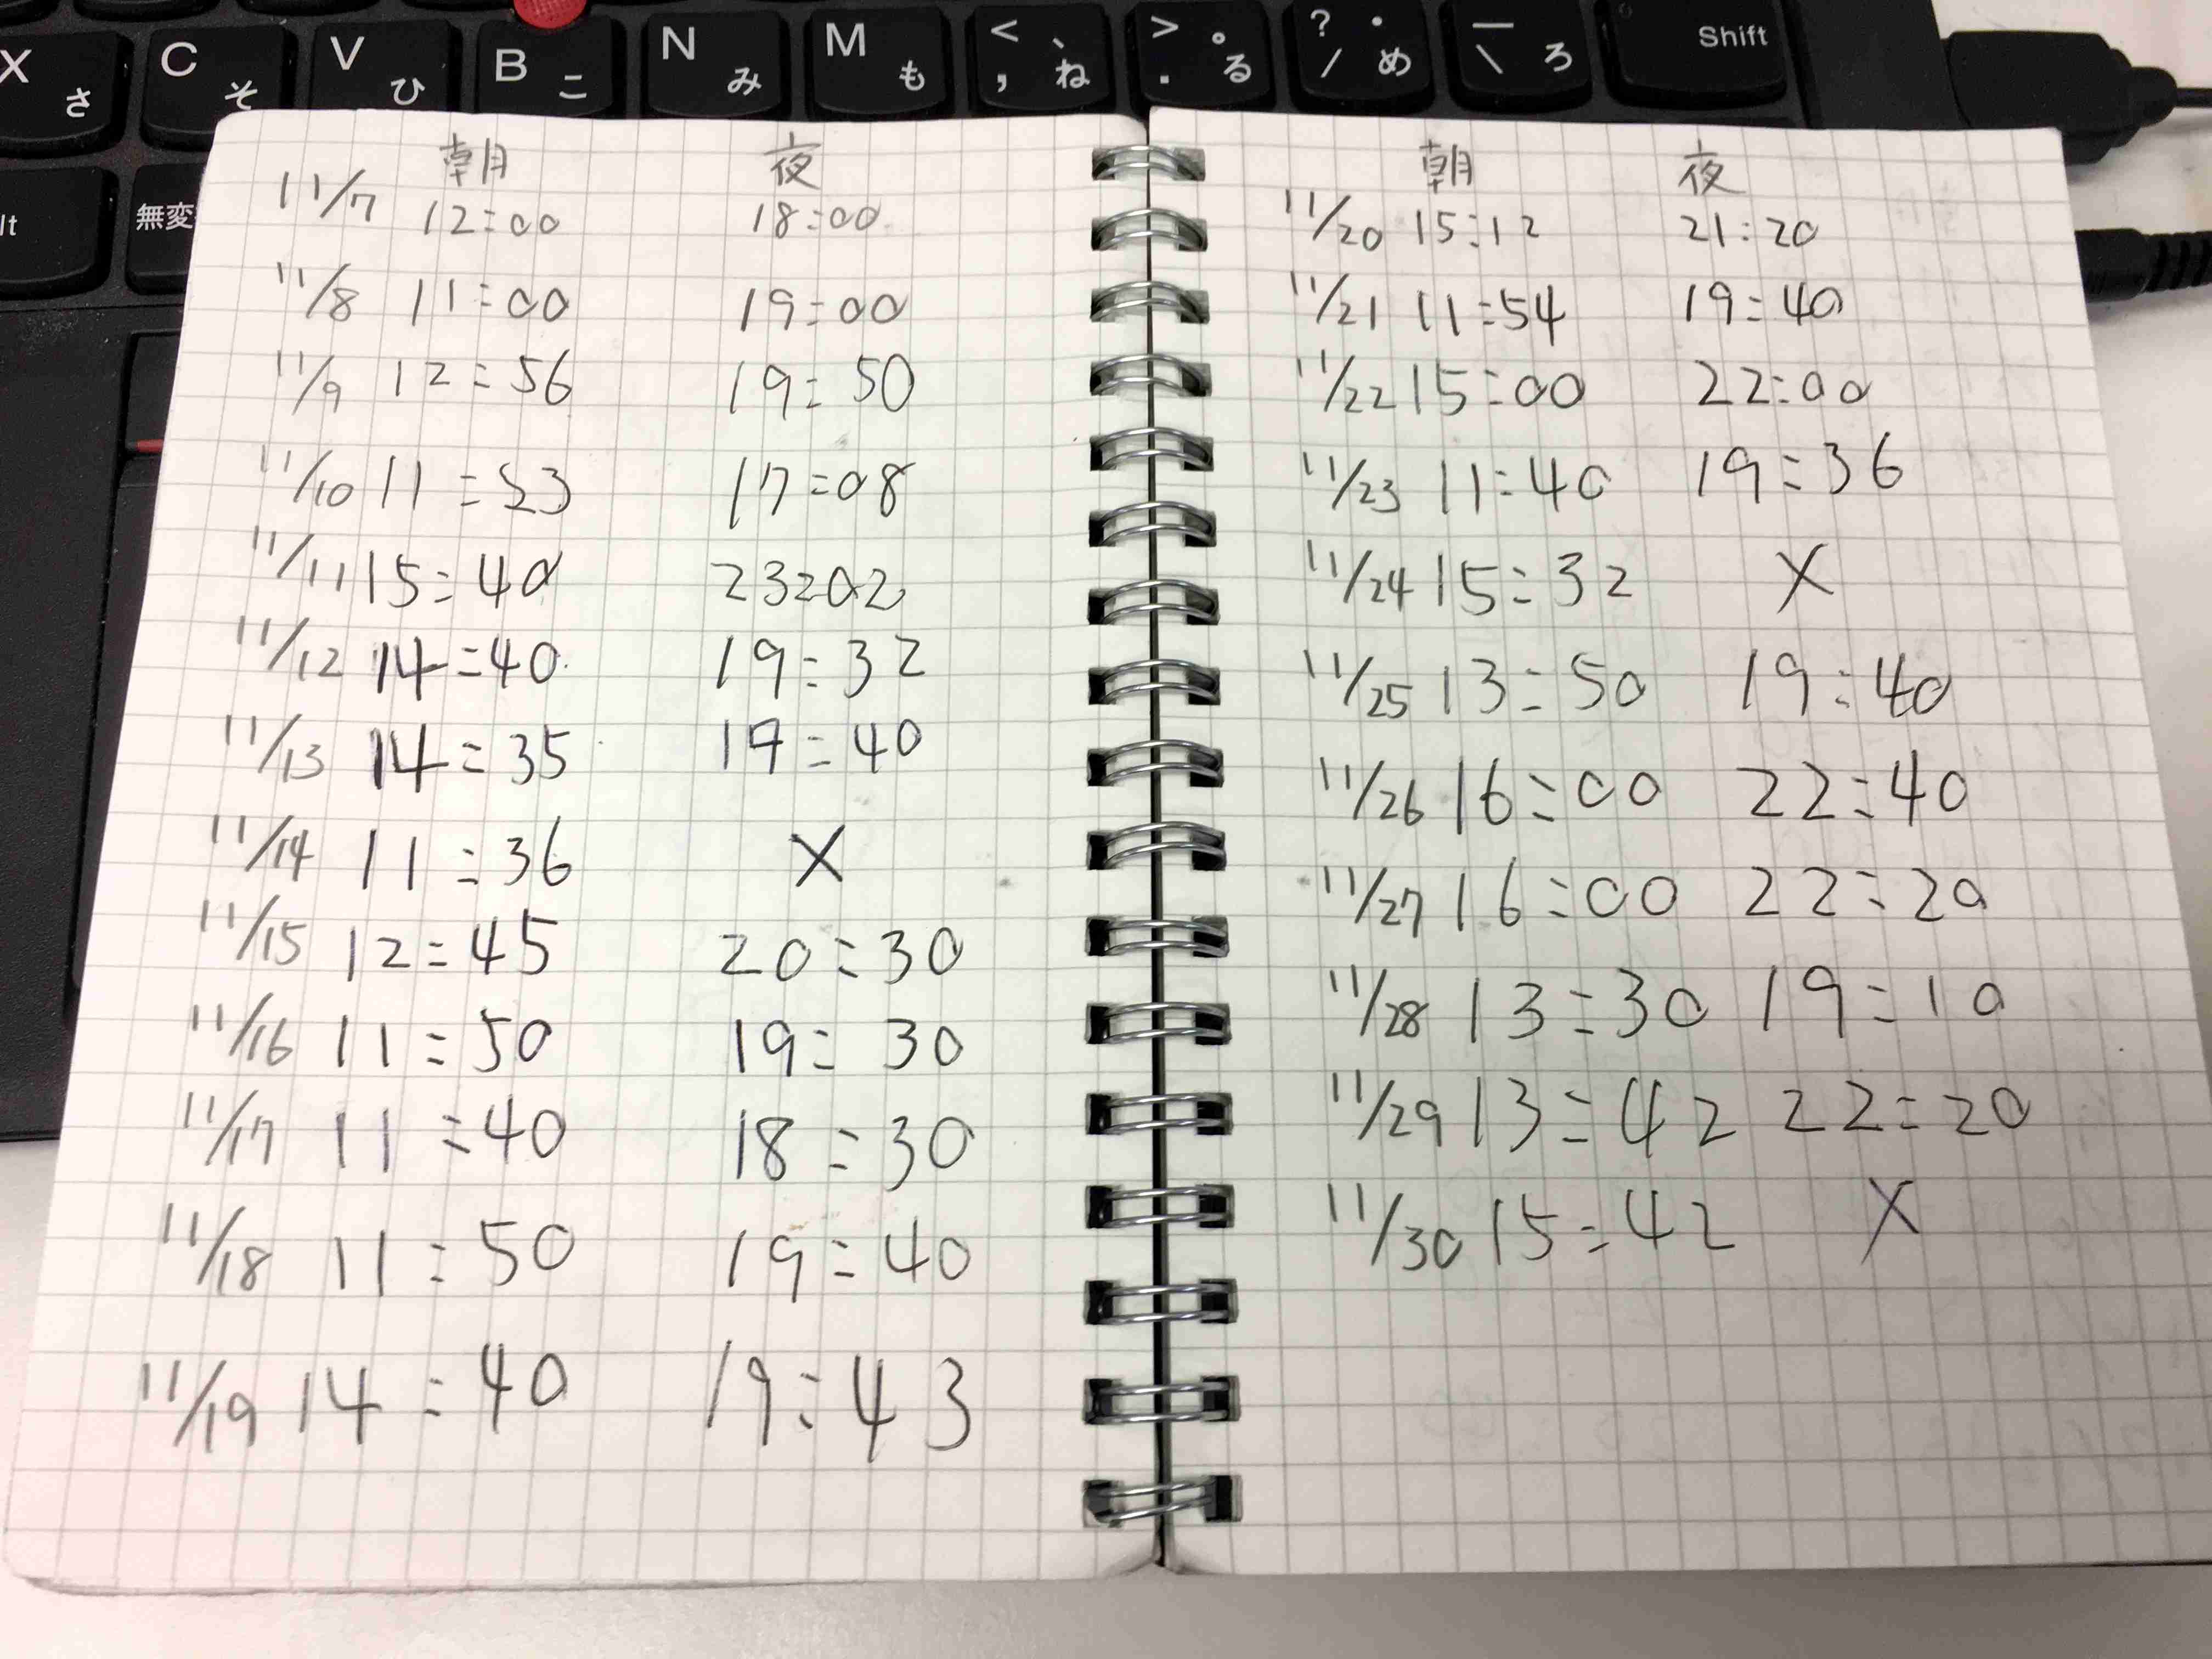 X さ C そ V ひ B こ N み M も < 、 , ね > 。 . る ? ・ / め _ \ ろ Shift
lt 無変
朝 夜
11/7 12:00 18:00
11/8 11:00 19:00
11/9 12:56 19:50
11/10 11:53 17:08
11/11 15:40 23:02
11/12 14:40 19:32
11/13 14:35 19:40
11/14 11:36 X
11/15 12:45 20:30
11/16 11:50 19:30
11/17 11:40 18:30
11/18 11:50 19:40
11/19 14:40 19:43
朝 夜
11/20 15:12 21:20
11/21 11:54 19:40
11/22 15:00 22:00
11/23 11:40 19:36
11/24 15:32 X
11/25 13:50 19:40
11/26 16:00 22:40
11/27 16:00 22:20
11/28 13:30 19:10
11/29 13:42 22:20
11/30 15:42 X